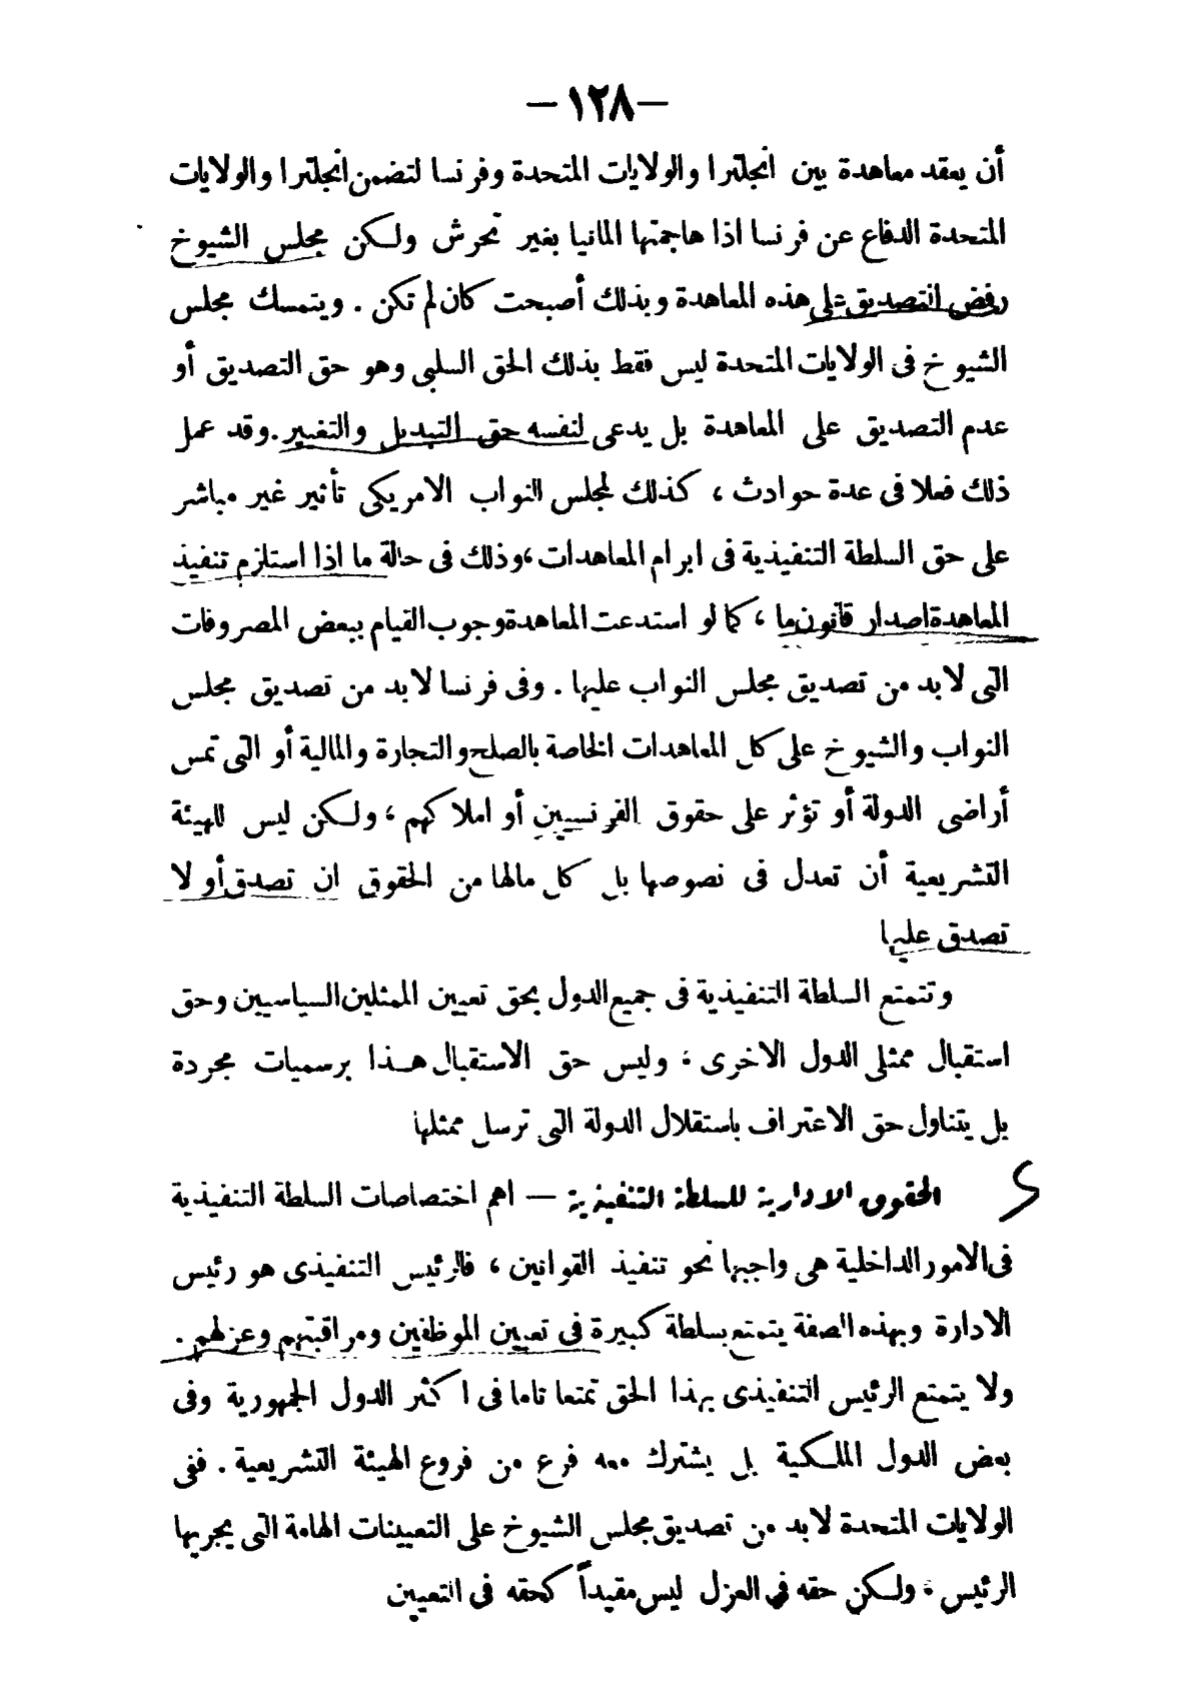 — ١٢٨ —
أن يعقد معاهدة بين انجلترا والولايات المتحدة وفرنسا لتضمن انجلترا والولايات
المتحدة الدفاع عن فرنسا اذا هاجمتها المانيا بغير تحرش ولكن مجلس الشيوخ
رفض التصديق على هذه المعاهدة وبذلك أصبحت كان لم تكن . ويتمسك مجلس
الشيوخ فى الولايات المتحدة ليس فقط بذلك الحق السلبى وهو حق التصديق أو
عدم التصديق على المعاهدة بل يدعى لنفسه حق التبديل والتغيير . وقد عمل
ذلك فعلا فى عدة حوادث ، كذلك لمجلس النواب الامريكى تأثير غير مباشر
على حق السلطة التنفيذية فى ابرام المعاهدات ، وذلك فى حالة ما اذا استلزم تنفيذ
المعاهدة اصدار قانون ما ، كما لو استدعت المعاهدة وجوب القيام ببعض المصروفات
التى لا بد من تصديق مجلس النواب عليها . وفى فرنسا لا بد من تصديق مجلس
النواب والشيوخ على كل المعاهدات الخاصة بالصلح والتجارة والمالية أو التى تمس
أراضى الدولة أو تؤثر على حقوق الفرنسيين أو املاكهم ، ولكن ليس للهيئة
التشريعية أن تعدل فى نصوصها بل كل مالها من الحقوق ان تصدق أو لا
تصدق عليها
وتتمتع السلطة التنفيذية فى جميع الدول بحق تعيين الممثلين السياسيين وحق
استقبال ممثلى الدول الاخرى ، وليس حق الاستقبال هذا برسميات مجردة
بل يتناول حق الاعتراف باستقلال الدولة التى ترسل ممثلها
الحقوق الادارية للسلطة التنفيذية — اهم اختصاصات السلطة التنفيذية
فى الامور الداخلية هى واجبها نحو تنفيذ القوانين ، فالرئيس التنفيذى هو رئيس
الادارة وبهذه الصفة يتمتع بسلطة كبيرة فى تعيين الموظفين ومراقبتهم وعزلهم .
ولا يتمتع الرئيس التنفيذى بهذا الحق تمتعا تاما فى اكثر الدول الجمهورية وفى
بعض الدول الملكية بل يشترك معه فرع من فروع الهيئة التشريعية . ففى
الولايات المتحدة لا بد من تصديق مجلس الشيوخ على التعيينات الهامة التى يجريها
الرئيس ، ولكن حقه فى العزل ليس مقيداً كحقه فى التعيين